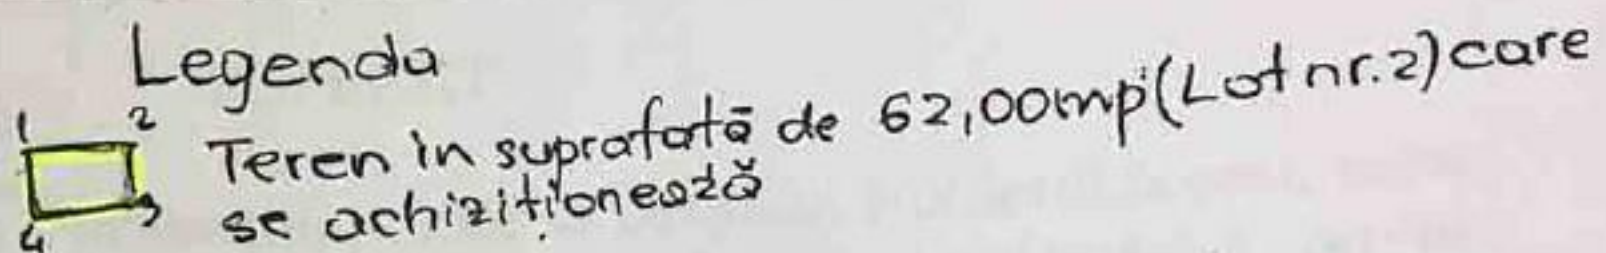 Legenda
1 2
Teren in suprafată de 62,00mp(Lot nr.2) care
se achiziționează
4 3